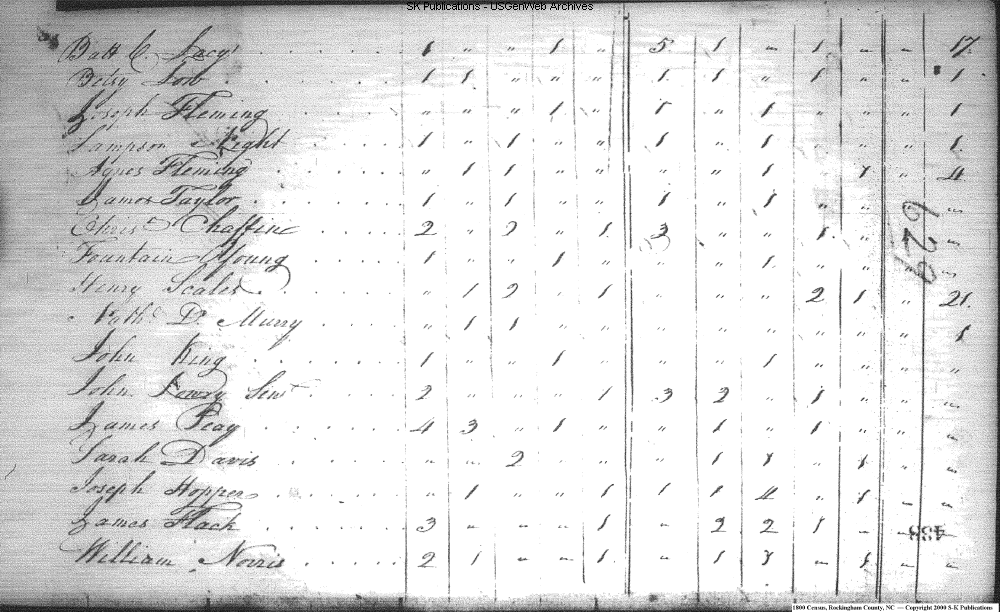 SK Publications - USGenWeb Archives
Batt C. Lacy 1 " " 1 " 5 1 " 1 " " 17
Betsy 1 1 " " " 1 1 " 1 " " 1
Joseph Fleming " " " 1 " 1 " 1 " " " 1
Sampson Light 1 " 1 " " 1 " 1 " " " 1
Agnes Fleming " 1 1 " " " " 1 " 1 " 4
James Taylor 1 " 1 " " 1 " 1 " " " "
Chris Chaffin 2 " 2 " 1 3 " " 1 " "
Fountain Young 1 " " 1 " " " 1 " " " "
Henry Scales " 1 2 " 1 " " " 2 1 " 21
Nath D. Murry " 1 1 " " " " " " " " 1
John King 1 " " 1 " " " 1 " " " "
John Lowry Senr 2 " " " 1 3 2 " 1 " " "
James Peay 4 3 " 1 " " 1 " 1 " " "
Sarah Davis " " 2 " " " 1 1 " 1 " "
Joseph Hopper " 1 " " 1 1 1 4 " 1 " "
James Flack 3 " " " 1 " 2 2 1 " " "
William Norris 2 1 " " 1 " 1 1 " 1 " "
629
1800 Census, Rockingham County, NC — Copyright 2000 S-K Publications